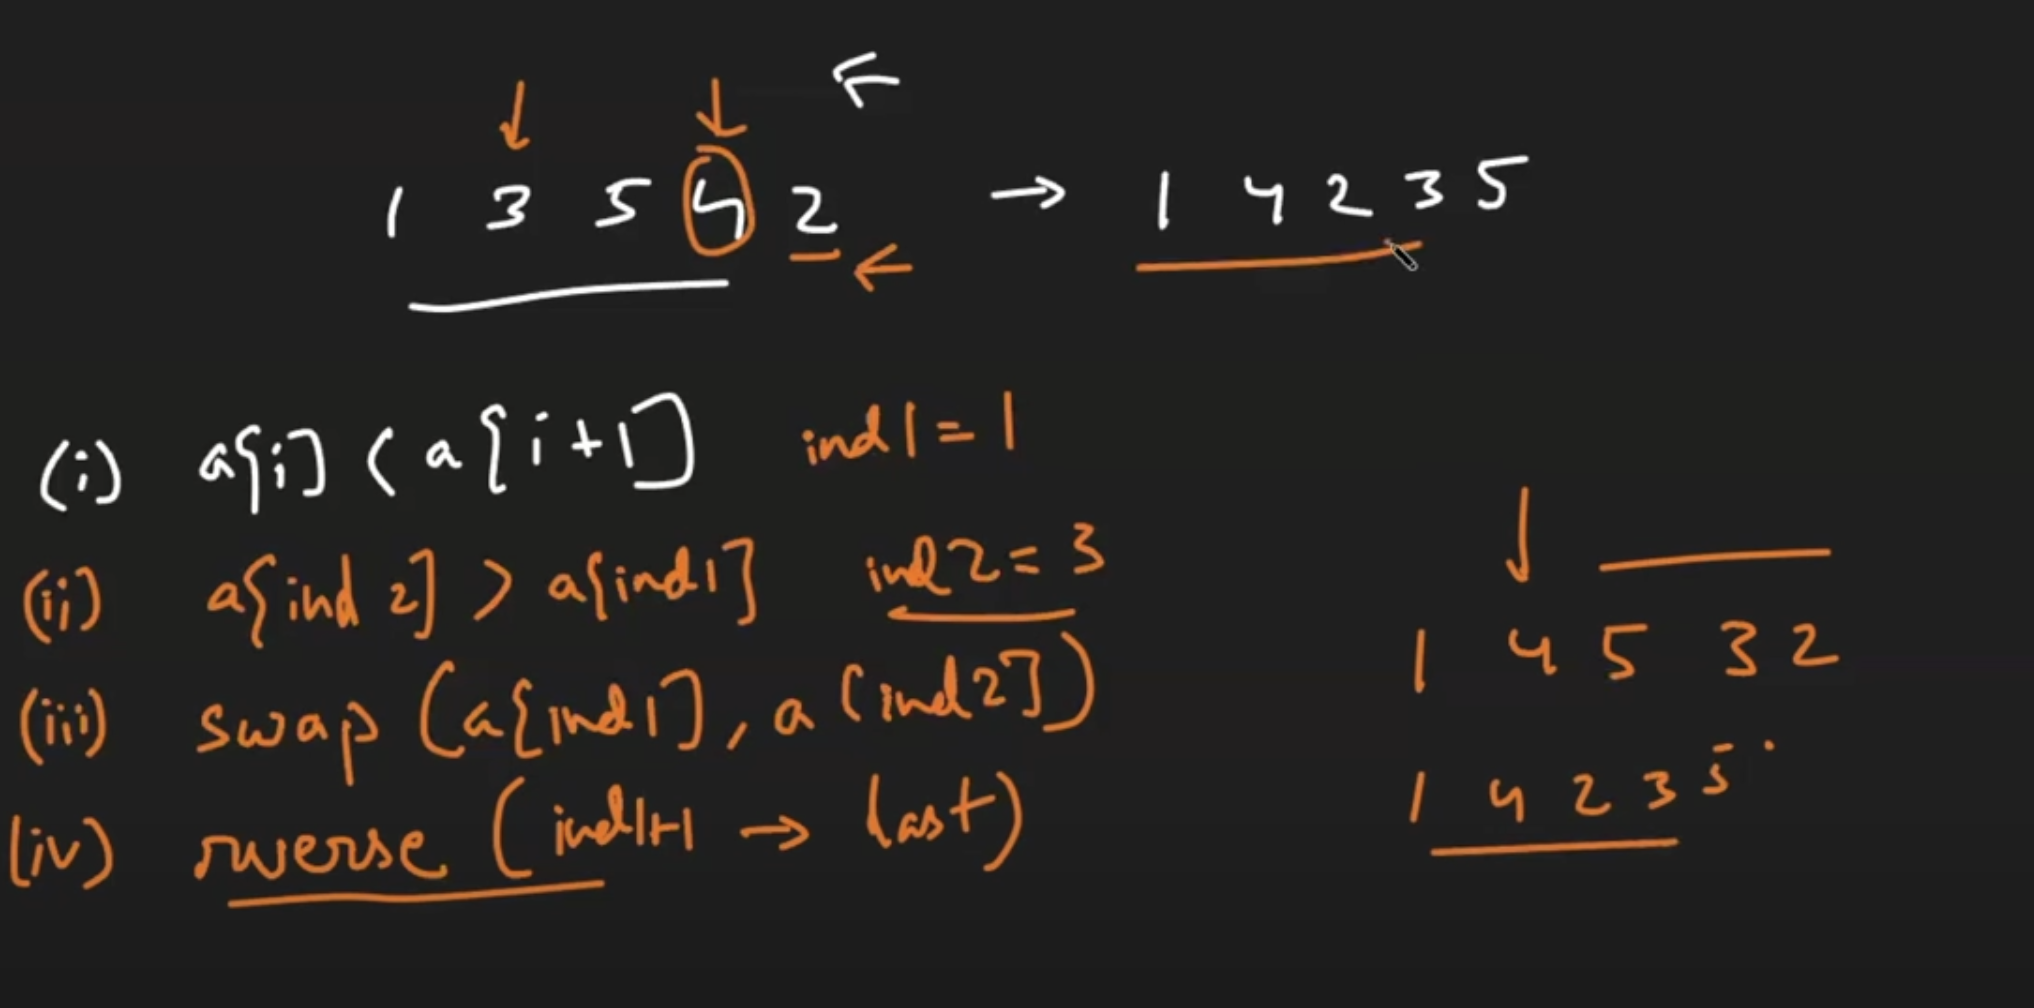 1 3 5 4 2 → 1 4 2 3 5
(i) a[i] < a[i+1] ind1 = 1
(ii) a[ind2] > a[ind1] ind2 = 3
(iii) swap (a[ind1], a[ind2])
(iv) reverse (ind1+1 → last)
1 4 5 3 2
1 4 2 3 5